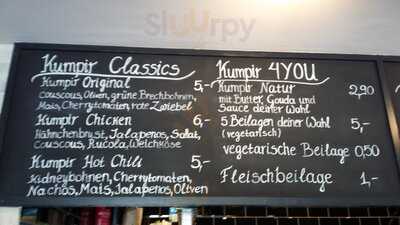 Sluurpy
Kumpir Classics
Kumpir Original 5,-
Couscous, Oliven, grüne Brechbohnen,
Mais, Cherrytomaten, rote Zwiebel
Kumpir Chicken 6,-
Hähnchenbrust, Jalapenos, Salat,
Couscous, Rucola, Weichkäse
Kumpir Hot Chili 5,-
Kidneybohnen, Cherrytomaten,
Nachos, Mais, Jalapenos, Oliven
Kumpir 4YOU
Kumpir Natur 2,90
mit Butter, Gouda und
Sauce deiner Wahl
5 Beilagen deiner Wahl 5,-
(vegetarisch)
vegetarische Beilage 0,50
Fleischbeilage 1,-